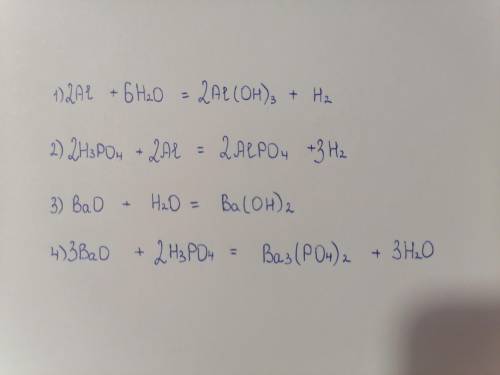 1) 2Al + 6H2O = 2Al(OH)3 + H2
2) 2H3PO4 + 2Al = 2AlPO4 + 3H2
3) BaO + H2O = Ba(OH)2
4) 3BaO + 2H3PO4 = Ba3(PO4)2 + 3H2O